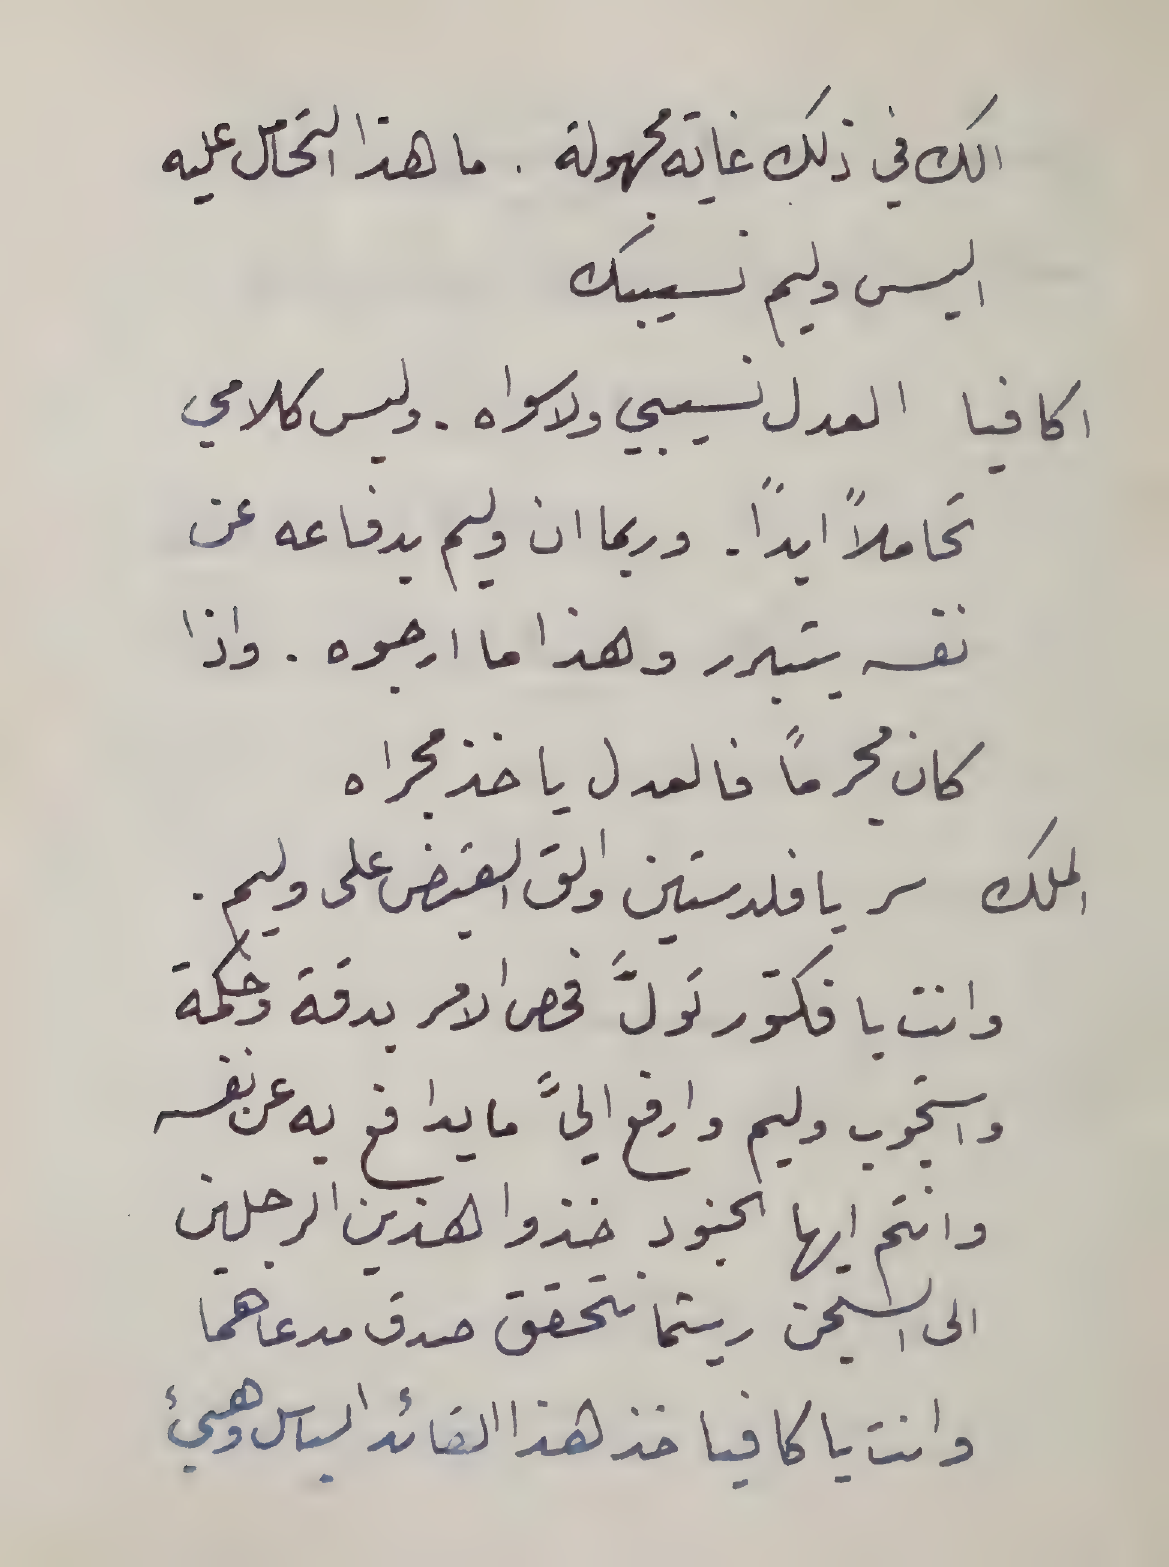 الك في ذلك غاية مجهولة . ما هذا التحامل عليه
اليس وليم نسيبك
اكافيا العدل نسيبي ولا سواه . وليس كلامي
تحاملاً ابداً . وربما ان وليم بدفاعه عن
نفسه يتبرر وهذا ما ارجوه . واذا
كان مجرماً فالعدل ياخذ مجراه
الملك سر يا فلدستين والق القبض على وليم .
وانت يا فكتور تولَّ فحص الامر بدقة وحكمة
واستجوب وليم وارفع اليَّ ما يدافع به عن نفسه
وانتم ايها الجنود خذوا هذين الرجلين
الى السجن ريثما نتحقق صدق مدعاهما
وانت يا كافيا خذ هذا القائد الباسل وهيئ